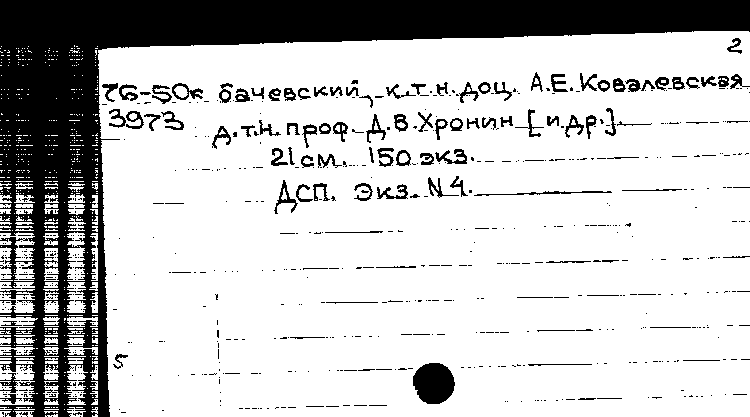 2
76-50к бачевский, к.т.н. доц. А.Е. Ковалевская
3973 д.т.н. проф. Д.В. Хронин [и др.].
21 см. 150 экз.
ДСП. Экз. N 4.
5